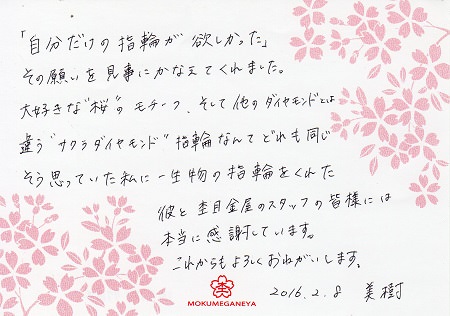 「自分だけの指輪が欲しかった」
その願いを見事にかなえてくれました。
大好きな"桜"のモチーフ、そして他のダイヤモンドとは
違う"サクラダイヤモンド"指輪なんてどれも同じ
そう思っていた私に一生物の指輪をくれた
彼と杢目金屋のスタッフの皆様には
本当に感謝しています。
これからもよろしくおねがいします。
2016.2.8 美樹
杢
MOKUMEGANEYA